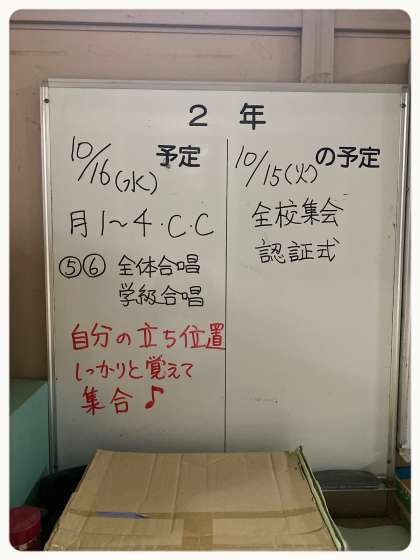 2 年
10/16(水) 予定
月1～4・C・C
⑤⑥ 全体合唱
学級合唱
自分の立ち位置
しっかりと覚えて
集合♪
10/15(火)の予定
全校集会
認証式